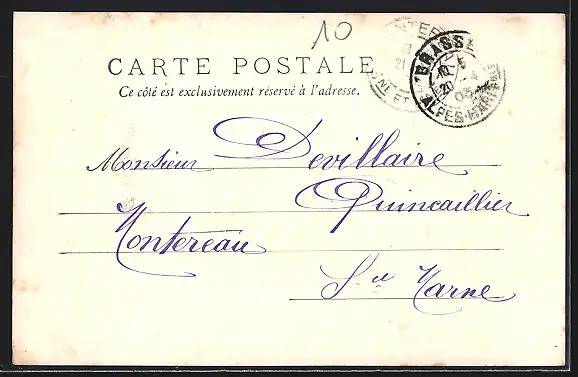 10
CARTE POSTALE
Ce côté est exclusivement réservé à l'adresse.
GRASSE
ALPES-MARITIMES
Monsieur Devillaire
Quincaillier
Montereau
S. et Marne